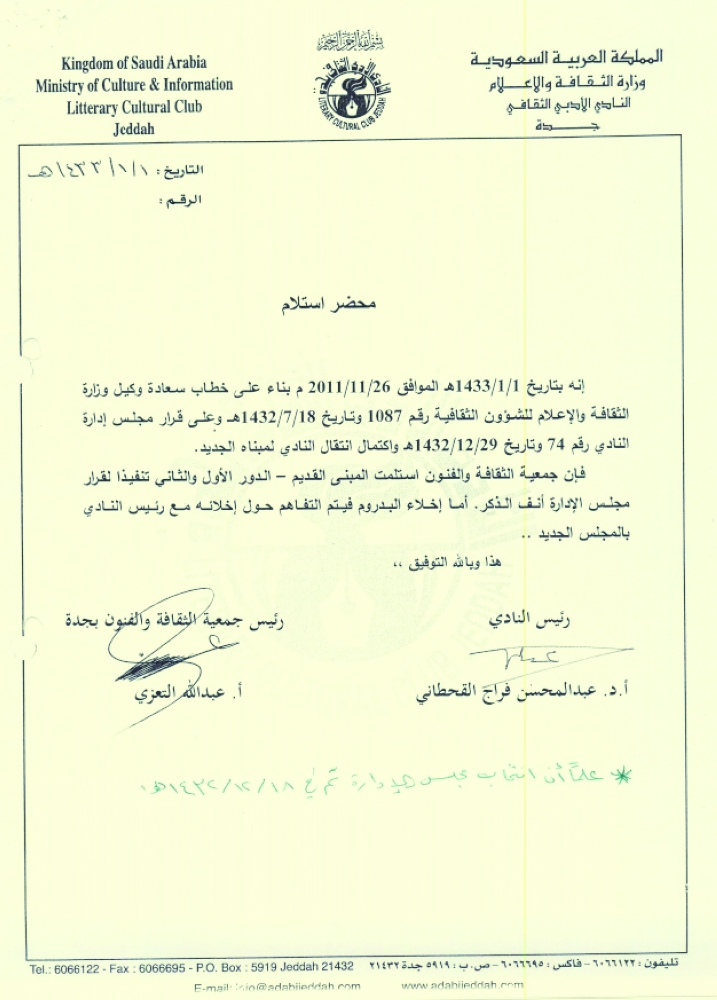 Kingdom of Saudi Arabia
Ministry of Culture & Information
Litterary Cultural Club
Jeddah
LITERARY CULTURAL CLUB JEDDAH
المملكة العربية السعودية
وزارة الثقافة والإعلام
النادي الأدبي الثقافي
جدة
التاريخ : ١ / ١ / ١٤٣٣ هـ
الرقم :
محضر استلام
إنه بتاريخ 1433/1/1هـ الموافق 2011/11/26 م بناء على خطاب سعادة وكيل وزارة
الثقافة والإعلام للشؤون الثقافية رقم 1087 وتاريخ 1432/7/18هـ وعلى قرار مجلس إدارة
النادي رقم 74 وتاريخ 1432/12/29هـ واكتمال انتقال النادي لمبناه الجديد.
فإن جمعية الثقافة والفنون استلمت المبنى القديم – الدور الأول والثاني تنفيذا لقرار
مجلس الإدارة أنف الذكر. أما إخلاء البدروم فيتم التفاهم حول إخلائه مع رئيس النادي
بالمجلس الجديد ..
هذا وبالله التوفيق ،،
رئيس النادي
أ.د. عبدالمحسن فراج القحطاني
رئيس جمعية الثقافة والفنون بجدة
أ. عبدالله التعزي
* علماً أن انتخاب مجلس الإدارة تم في ١٨ / ١٢ / ١٤٣٢هـ
Tel.: 6066122 - Fax : 6066695 - P.O. Box : 5919 Jeddah 21432
تليفون : ٦٠٦٦١٢٢ – فاكس : ٦٠٦٦٦٩٥ – ص.ب : ٥٩١٩ جدة ٢١٤٣٢
www.adabijeddah.com